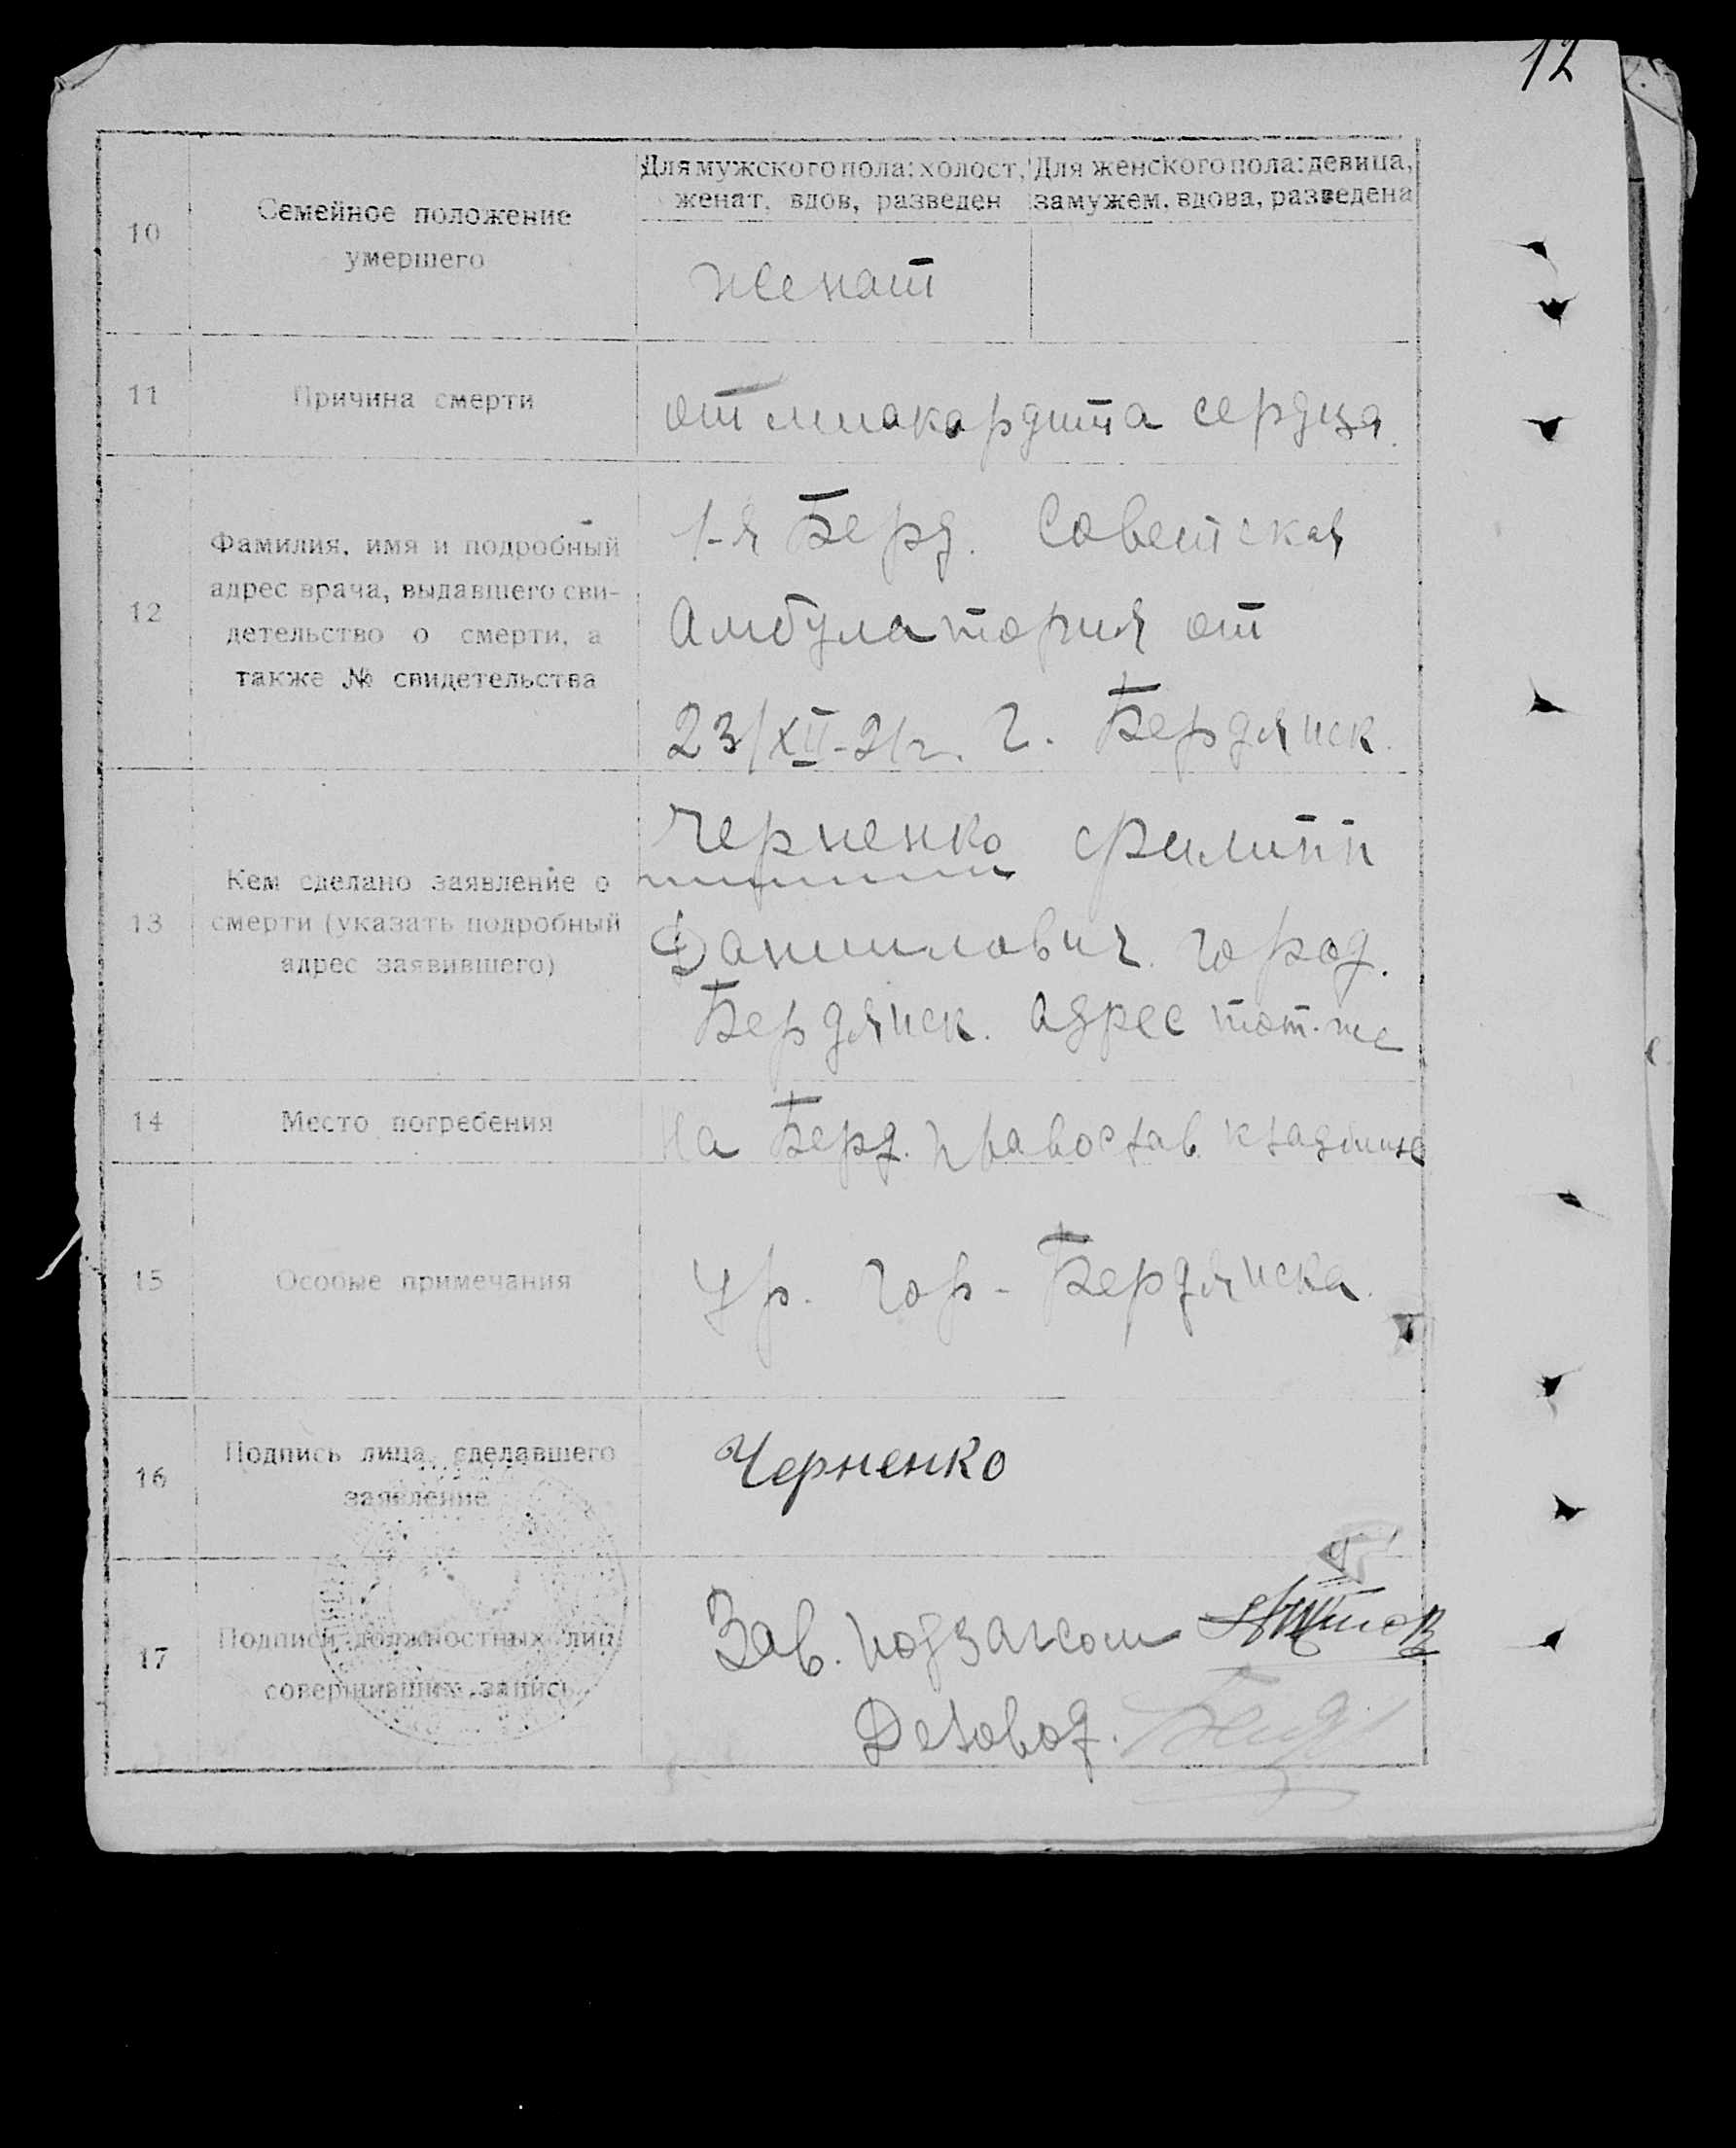 12
10
Семейное положение
умершего
Для мужского пола: холост,
женат, вдов, разведен
Для женского пола: девица,
замужем, вдова, разведена
женат
11
Причина смерти
от миокардита сердца.
12
Фамилия, имя и подробный
адрес врача, выдавшего сви-
детельство о смерти, а
также № свидетельства
1-я Берд. Советская
Амбулатория от
23/XII-21г. г. Бердянск.
13
Кем сделано заявление о
смерти (указать подробный
адрес заявившего)
Черненко Филипп
Данилович. город.
Бердянск. адрес тот-же
14
Место погребения
На Берд. православ. кладбище
15
Особые примечания
Ур. гор- Бердянска.
16
Подпись лица, сделавшего
заявление
Черненко
17
Подписи должностных лиц,
совершивших запись
Зав. подзагсом
Деловод.